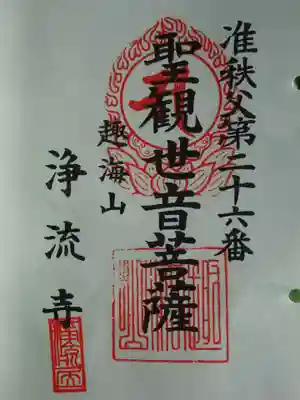 准秩父第二十六番
聖観世音菩薩
趣海山
浄流寺